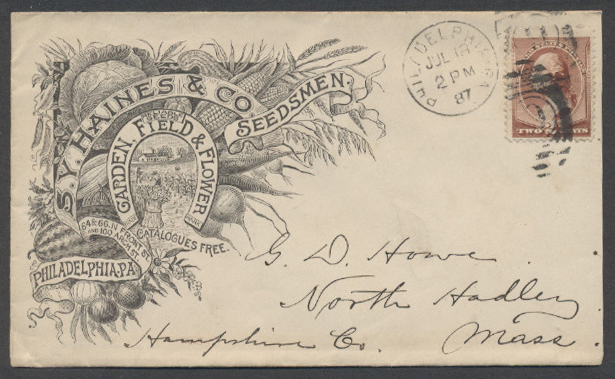 S.Y. HAINES & CO
SEEDSMEN.
GARDEN, FIELD & FLOWER
64 & 66. N. FRONT ST.
AND 100 ARCH ST.
CATALOGUES FREE.
PHILADELPHIA. PA.
PHILADELPHIA PA
JUL 18
2 PM
87
TWO CENTS
G. D. Howe
North Hadley
Hampshire Co. Mass.